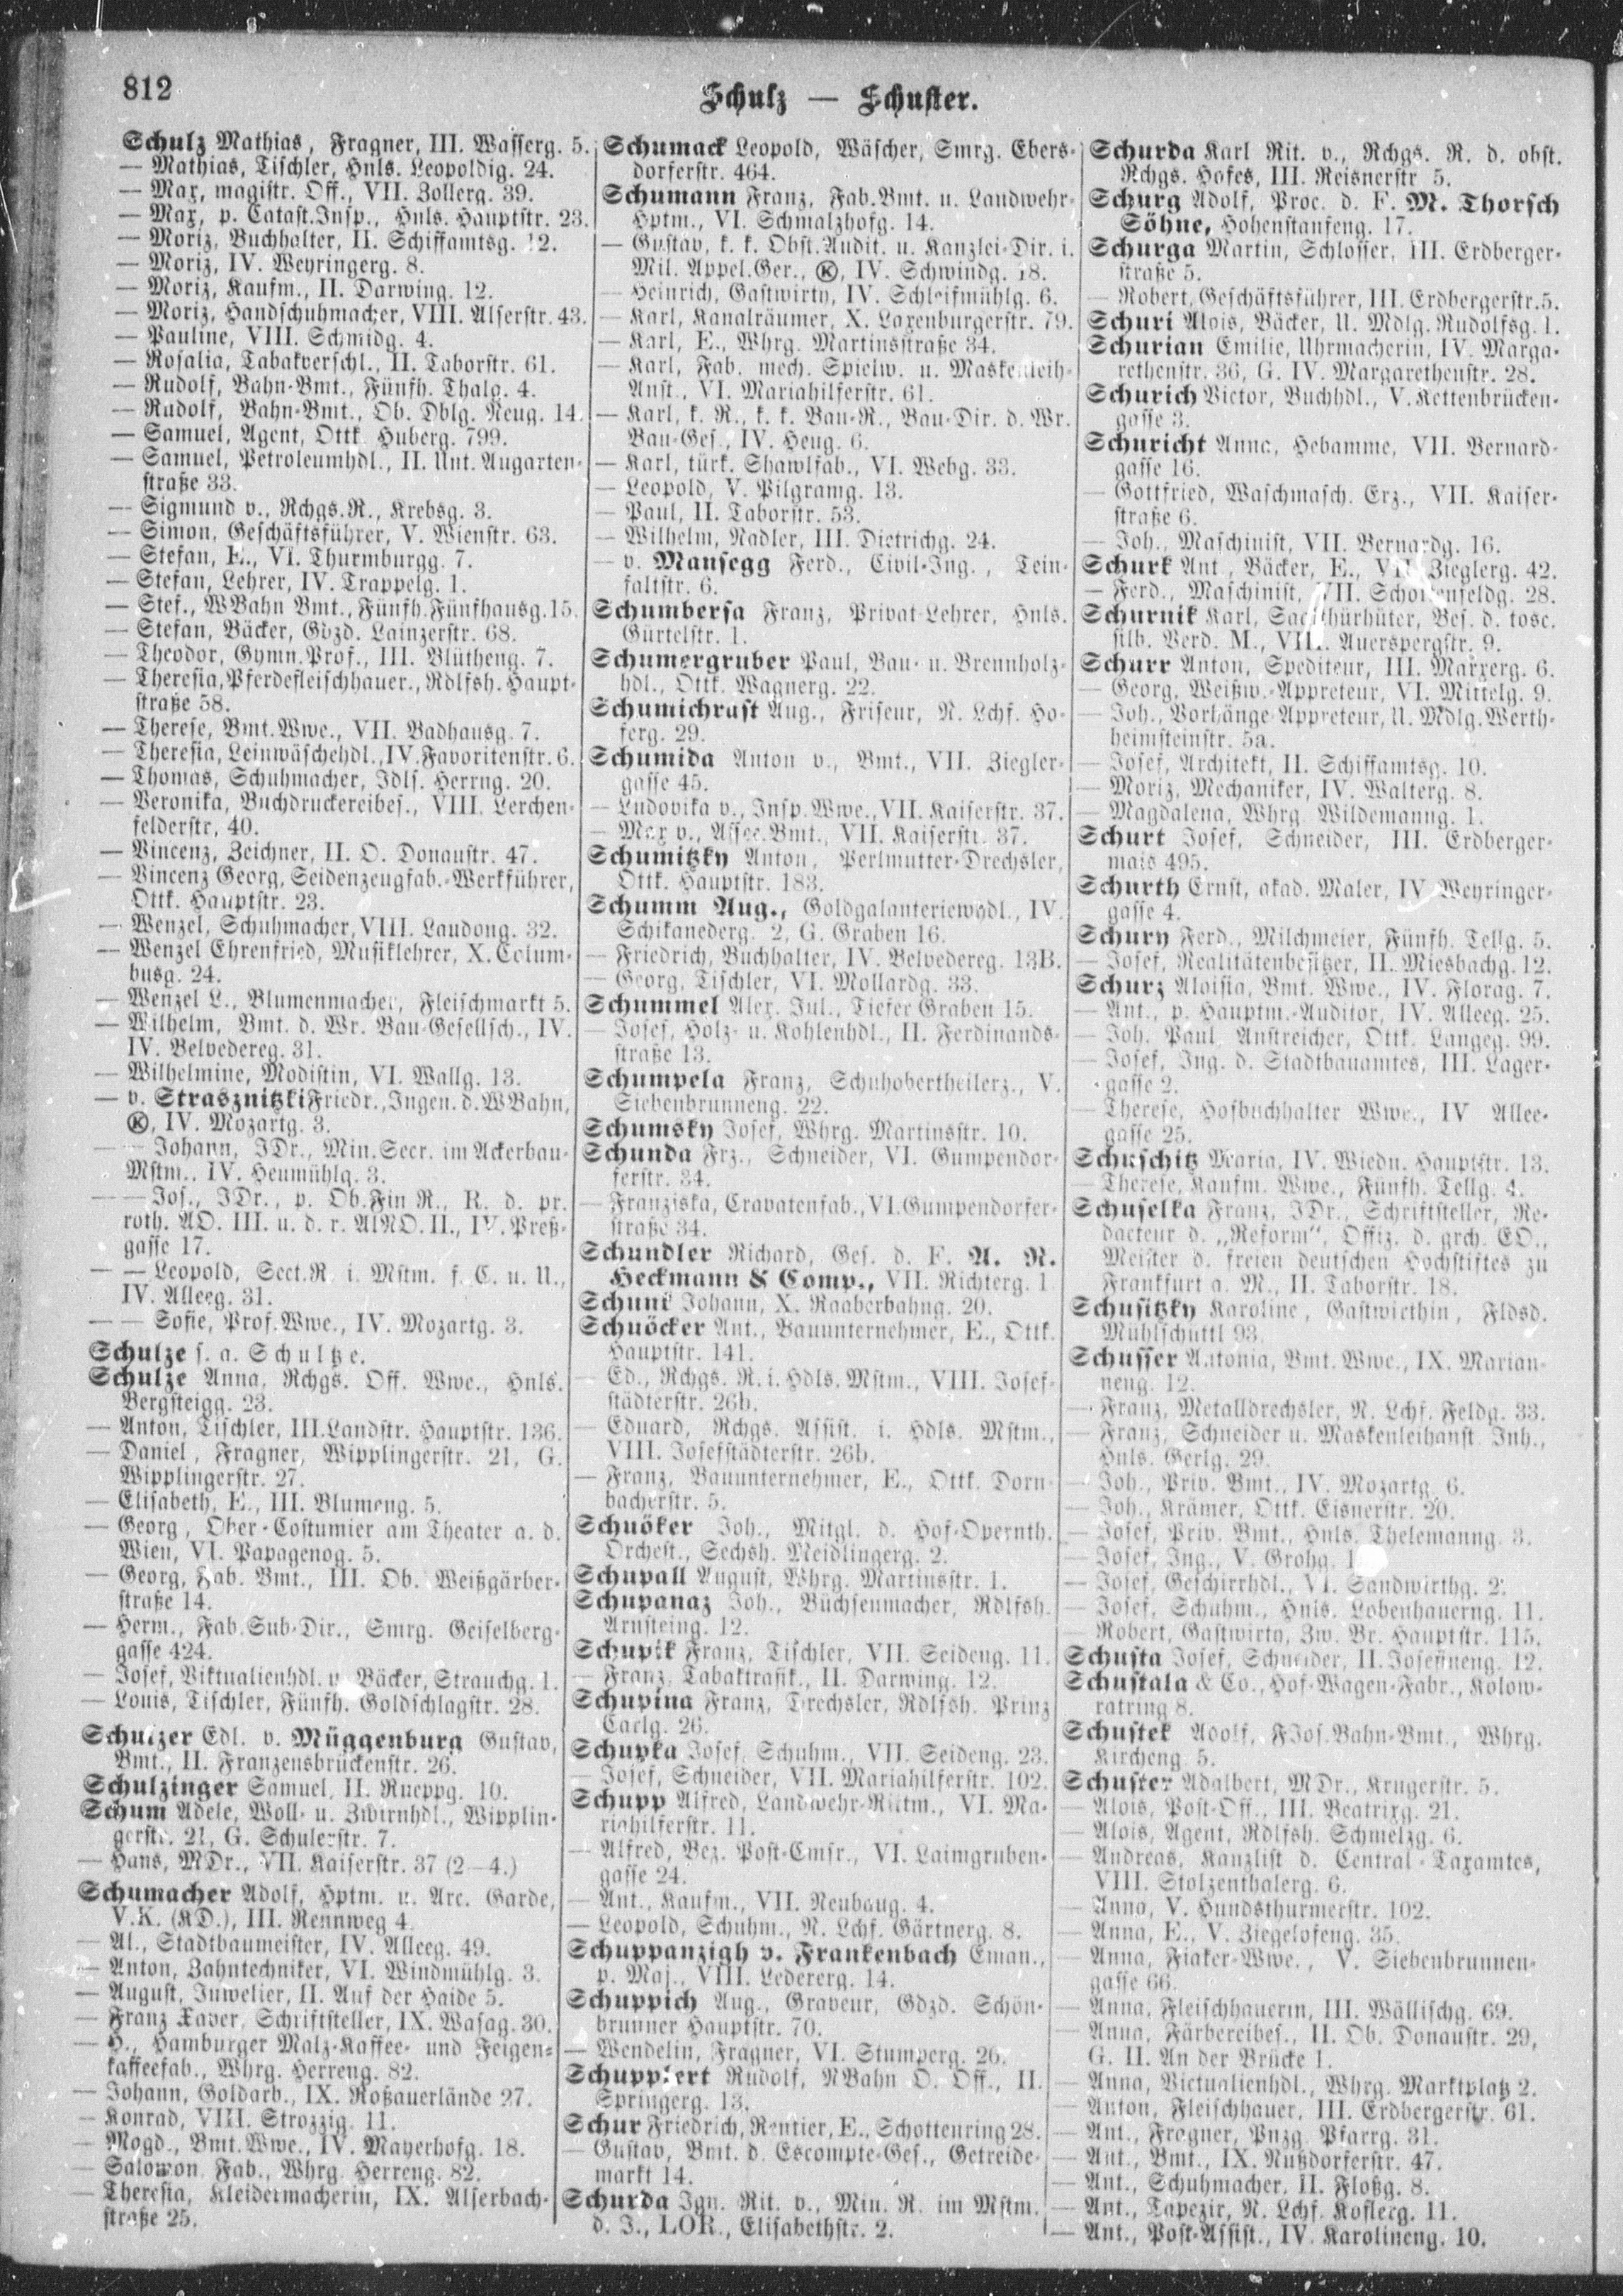 812
Schulz — Schuster.
Schulz Mathias, Fragner, III. Wasserg. 5.
— Mathias, Tischler, Hnls. Leopoldig. 24.
— Max, magistr. Off., VII. Zollerg. 39.
— Max, p. Catast.Insp., Hnls. Hauptstr. 23.
— Moriz, Buchhalter, II. Schiffamtsg. 12.
— Moriz, IV. Weyringerg. 8.
— Moriz, Kaufm., II. Darwing. 12.
— Moriz, Handschuhmacher, VIII. Alserstr. 43.
— Pauline, VIII. Schmidg. 4.
— Rosalia, Tabakverschl., II. Taborstr. 61.
— Rudolf, Bahn-Bmt., Fünfh. Thalg. 4.
— Rudolf, Bahn-Bmt., Ob. Dblg. Neug. 14.
— Samuel, Agent, Ottk. Huberg. 799.
— Samuel, Petroleumhdl., II. Unt. Augarten-
straße 33.
— Sigmund v., Rchgs.R., Krebsg. 3.
— Simon, Geschäftsführer, V. Wienstr. 63.
— Stefan, E., VI. Thurmburgg. 7.
— Stefan, Lehrer, IV. Trappelg. 1.
— Stef., WBahn Bmt., Fünfh.Fünfhausg.15.
— Stefan, Bäcker, Gdzd. Lainzerstr. 68.
— Theodor, Gymn.Prof., III. Blütheng. 7.
— Theresia, Pferdefleischhauer., Rdlfsh. Haupt-
straße 58.
— Therese, Bmt.Wwe., VII. Badhausg. 7.
— Theresia, Leinwäschehdl., IV.Favoritenstr. 6.
— Thomas, Schuhmacher, Jdls. Herrng. 20.
— Veronika, Buchdruckereibes., VIII. Lerchen-
felderstr. 40.
— Vincenz, Zeichner, II. O. Donaustr. 47.
— Vincenz Georg, Seidenzeugfab.-Werkführer,
Ottk. Hauptstr. 23.
— Wenzel, Schuhmacher, VIII. Laudong. 32.
— Wenzel Ehrenfried, Musiklehrer, X. Colum-
busg. 24.
— Wenzel L., Blumenmacher, Fleischmarkt 5.
— Wilhelm, Bmt. d. Wr. Bau-Gesellsch., IV.
IV. Belvedereg. 31.
— Wilhelmine, Modistin, VI. Wallg. 13.
— v. Strasznitzki Friedr., Ingen. d. WBahn,
Ⓚ, IV. Mozartg. 3.
— — Johann, JDr., Min.Secr. im Ackerbau-
Mstm., IV. Heumühlg. 3.
— — Jos., JDr., p. Ob.Fin R., R. d. pr.
roth. AO. III. u. d. r. AlNO. II., IV. Preß-
gasse 17.
— — Leopold, Sect.R. i. Mstm. f. C. u. U.,
IV. Alleeg. 31.
— — Sofie, Prof.Wwe., IV. Mozartg. 3.
Schulze s. a. Schultze.
Schulze Anna, Rchgs. Off. Wwe., Hnls.
Bergsteigg. 23.
— Anton, Tischler, III.Landstr. Hauptstr. 136.
— Daniel, Fragner, Wipplingerstr. 21, G.
Wipplingerstr. 27.
— Elisabeth, E., III. Blumeng. 5.
— Georg, Ober-Costumier am Theater a. d.
Wien, VI. Papagenog. 5.
— Georg, Fab. Bmt., III. Ob. Weißgärber-
straße 14.
— Herm., Fab.Sub-Dir., Smrg. Geiselberg-
gasse 424.
— Josef, Viktualienhdl. u. Bäcker, Strauchg. 1.
— Louis, Tischler, Fünfh. Goldschlagstr. 28.
Schulzer Edl. v. Müggenburg Gustav,
Bmt., II. Franzensbrückenstr. 26.
Schulzinger Samuel, II. Rueppg. 10.
Schum Adele, Woll- u. Zwirnhdl., Wipplin-
gerstr. 21, G. Schulerstr. 7.
— Hans, MDr., VII. Kaiserstr. 37 (2—4.)
Schumacher Adolf, Hptm. u. Arc. Garde,
V.K. (KD.), III. Rennweg 4.
— Al., Stadtbaumeister, IV. Alleeg. 49.
— Anton, Zahntechniker, VI. Windmühlg. 3.
— August, Juwelier, II. Auf der Haide 5.
— Franz Xaver, Schriftsteller, IX. Wasag. 30.
— H., Hamburger Malz-Kaffee- und Feigen-
kaffeefab., Whrg. Herreng. 82.
— Johann, Goldarb., IX. Roßauerlände 27.
— Konrad, VIII. Strozzig. 11.
— Magd., Bmt.Wwe., IV. Mayerhofg. 18.
— Salomon, Fab., Whrg. Herreng. 82.
— Theresia, Kleidermacherin, IX. Alserbach-
straße 25.
Schumack Leopold, Wäscher, Smrg. Ebers-
dorferstr. 464.
Schumann Franz, Fab.Bmt. u. Landwehr-
Hptm., VI. Schmalzhofg. 14.
— Gustav, k. k. Obst.Audit. u. Kanzlei-Dir. i.
Mil. Appel.Ger., Ⓚ, IV. Schwindg. 18.
— Heinrich, Gastwirth, IV. Schleifmühlg. 6.
— Karl, Kanalräumer, X. Laxenburgerstr. 79.
— Karl, E., Whrg. Martinsstraße 34.
— Karl, Fab. mech. Spielw. u. Maskenleih-
Anst., VI. Mariahilferstr. 61.
— Karl, k. R., k. k. Bau-R., Bau-Dir. d. Wr.
Bau-Ges., IV. Heug. 6.
— Karl, türk. Shawlfab., VI. Webg. 33.
— Leopold, V. Pilgramg. 13.
— Paul, II. Taborstr. 53.
— Wilhelm, Nadler, III. Dietrichg. 24.
— v. Mansegg Ferd., Civil-Ing., Tein-
faltstr. 6.
Schumbersa Franz, Privat-Lehrer, Hnls.
Gürtelstr. 1.
Schumergruber Paul, Bau- u. Brennholz-
hdl., Ottk. Wagnerg. 22.
Schumichrast Aug., Friseur, N. Lchf. Ho-
ferg. 29.
Schumida Anton v., Bmt., VII. Ziegler-
gasse 45.
— Ludovika v., Insp.Wwe., VII. Kaiserstr. 37.
— Max v., Assec.Bmt., VII. Kaiserstr. 37.
Schumitzky Anton, Perlmutter-Drechsler,
Ottk. Hauptstr. 183.
Schumm Aug., Goldgalanteriewhdl., IV.
Schikanederg. 2, G. Graben 16.
— Friedrich, Buchhalter, IV. Belvedereg. 13B.
— Georg, Tischler, VI. Mollardg. 33.
Schummel Alex. Jul., Tiefer Graben 15.
— Josef, Holz- u. Kohlenhdl., II. Ferdinands-
straße 13.
Schumpela Franz, Schuhobertheilerz., V.
Siebenbrunneng. 22.
Schumsky Josef, Whrg. Martinsstr. 10.
Schunda Frz., Schneider, VI. Gumpendor-
ferstr. 34.
— Franziska, Cravatenfab., VI.Gumpendorfer-
straße 34.
Schundler Richard, Ges. d. F. A. R.
Heckmann & Comp., VII. Richterg. 1.
Schuni Johann, X. Raaberbahng. 20.
Schuöcker Ant., Bauunternehmer, E., Ottk.
Hauptstr. 141.
— Ed., Rchgs. R. i. Hdls. Mstm., VIII. Josef-
städterstr. 26b.
— Eduard, Rchgs. Assist. i. Hdls. Mstm.,
VIII. Josefstädterstr. 26b.
— Franz, Bauunternehmer, E., Ottk. Dorn-
bacherstr. 5.
Schuöker Joh., Mitgl. d. Hof-Opernth.
Orchest., Sechsh. Meidlingerg. 2.
Schupall August, Whrg. Martinsstr. 1.
Schupanaz Joh., Büchsenmacher, Rdlfsh.
Arnsteing. 12.
Schupik Franz, Tischler, VII. Seideng. 11.
— Franz, Tabaktrafik, II. Darwing. 12.
Schupina Franz, Drechsler, Rdlfsh. Prinz
Carlg. 26.
Schupka Josef, Schuhm., VII. Seideng. 23.
— Josef, Schneider, VII. Mariahilferstr. 102.
Schupp Alfred, Landwehr-Rittm., VI. Ma-
riahilferstr. 11.
— Alfred, Bez. Post-Cmsr., VI. Laimgruben-
gasse 24.
— Ant., Kaufm., VII. Neubaug. 4.
— Leopold, Schuhm., N. Lchf. Gärtnerg. 8.
Schuppanzigh v. Frankenbach Eman.,
p. Maj., VIII. Ledererg. 14.
Schuppich Aug., Graveur, Gdzd. Schön-
brunner Hauptstr. 70.
— Wendelin, Fragner, VI. Stumperg. 26.
Schupplert Rudolf, NBahn O. Off., II.
Springerg. 13.
Schur Friedrich, Rentier, E., Schottenring 28.
— Gustav, Bmt. d. Escompte-Ges., Getreide-
markt 14.
Schurda Ign. Rit. v., Min. R. im Mstm.
d. J., LOR., Elisabethstr. 2.
Schurda Karl Rit. v., Rchgs. R. d. obst.
Rchgs. Hofes, III. Reisnerstr. 5.
Schurg Adolf, Proc. d. F. M. Thorsch
Söhne, Hohenstaufeng. 17.
Schurga Martin, Schlosser, III. Erdberger-
straße 5.
— Robert, Geschäftsführer, III. Erdbergerstr.5.
Schuri Alois, Bäcker, U. Mdlg. Rudolfsg. 1.
Schurian Emilie, Uhrmacherin, IV. Marga-
rethenstr. 36, G. IV. Margarethenstr. 28.
Schurich Victor, Buchhdl., V. Kettenbrücken-
gasse 3.
Schuricht Anna, Hebamme, VII. Bernard-
gasse 16.
— Gottfried, Waschmasch. Erz., VII. Kaiser-
straße 6.
— Joh., Maschinist, VII. Bernardg. 16.
Schurk Ant., Bäcker, E., VII. Zieglerg. 42.
— Ferd., Maschinist, VII. Schottenfeldg. 28.
Schurnik Karl, Saalthürhüter, Bes. d. tosc.
silb. Verd. M., VIII. Auerspergstr. 9.
Schurr Anton, Spediteur, III. Marxerg. 6.
— Georg, Weißw.-Appreteur, VI. Mittelg. 9.
— Joh., Vorhänge-Appreteur, U. Mdlg. Werth-
heimsteinstr. 5a.
— Josef, Architekt, II. Schiffamtsg. 10.
— Moriz, Mechaniker, IV. Walterg. 8.
— Magdalena, Whrg. Wildemanng. 1.
Schurt Josef, Schneider, III. Erdberger-
mais 495.
Schurth Ernst, akad. Maler, IV. Weyringer-
gasse 4.
Schury Ferd., Milchmeier, Fünfh. Tellg. 5.
— Josef, Realitätenbesitzer, II. Miesbachg. 12.
Schurz Aloisia, Bmt. Wwe., IV. Florag. 7.
— Ant., p. Hauptm.-Auditor, IV. Alleeg. 25.
— Joh. Paul, Anstreicher, Ottk. Langeg. 99.
— Josef, Ing. d. Stadtbauamtes, III. Lager-
gasse 2.
— Therese, Hofbuchhalter Wwe., IV Allee-
gasse 25.
Schuschitz Maria, IV. Wiedn. Hauptstr. 13.
— Therese, Kaufm. Wwe., Fünfh. Tellg. 4.
Schuselka Franz, JDr., Schriftsteller, Re-
dacteur d. „Reform“, Offiz. d. grch. EO.,
Meister d. freien deutschen Hochstiftes zu
Frankfurt a. M., II. Taborstr. 18.
Schusitzky Karoline, Gastwirthin, Fldsd.
Mühlschüttl 93.
Schusser Antonia, Bmt. Wwe., IX. Marian-
neng. 12.
— Franz, Metalldrechsler, N. Lchf. Feldg. 33.
— Franz, Schneider u. Maskenleihanst. Inh.,
Hnls. Gerlg. 29.
— Joh., Priv. Bmt., IV. Mozartg. 6.
— Joh., Krämer, Ottk. Eisnerstr. 20.
— Josef, Priv. Bmt., Hnls. Thelemanng. 3.
— Josef, Ing., V. Grohg.
— Josef, Geschirrhdl., VI. Sandwirthg. 2.
— Josef, Schuhm., Hnls. Lobenhauerng. 11.
— Robert, Gastwirth, Zw. Br. Hauptstr. 115.
Schusta Josef, Schneider, II. Josefineng. 12.
Schustala & Co., Hof-Wagen-Fabr., Kolow-
ratring 8.
Schustek Adolf, FJos.Bahn-Bmt., Whrg.
Kircheng. 5.
Schuster Adalbert, MDr., Krugerstr. 5.
— Alois, Post-Off., III. Beatrixg. 21.
— Alois, Agent, Rdlfsh. Schmelzg. 6.
— Andreas, Kanzlist d. Central-Taxamtes,
VIII. Stolzenthalerg. 6.
— Anna, V. Hundsthurmerstr. 102.
— Anna, E., V. Ziegelofeng. 35.
— Anna, Fiaker-Wwe., V. Siebenbrunnen-
gasse 66.
— Anna, Fleischhauerin, III. Wällischg. 69.
— Anna, Färbereibes., II. Ob. Donaustr. 29,
G. II. An der Brücke 1.
— Anna, Victualienhdl., Whrg. Marktplatz 2.
— Anton, Fleischhauer, III. Erdbergerstr. 61.
— Ant., Fragner, Pnzg. Pfarrg. 31.
— Ant., Bmt., IX. Nußdorferstr. 47.
— Ant., Schuhmacher, II. Floßg. 8.
— Ant., Tapezir, N. Lchf. Koflerg. 11.
— Ant., Post-Assist., IV. Karolineng. 10.